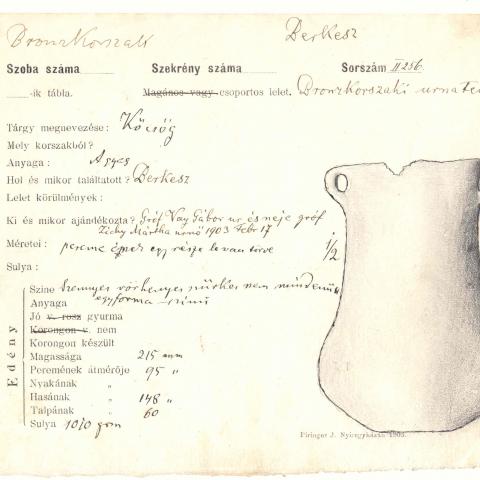 Bronzkorszak
Berkesz
Szoba száma
Szekrény száma
Sorszám II 256.
-ik tábla.
Magános vagy csoportos lelet. Bronzkorszaki urnate
Tárgy megnevezése: Köcsög
Mely korszakból?
Anyaga: Agyag
Hol és mikor találtatott? Berkesz
Lelet körülmények:
Ki és mikor ajándékozta? Gróf Vay Gábor ur és neje gróf
Zichy Mártha urnő 1903 Febr 17
Méretei: pereme épen egy része le van törve
1/2
Sulya:
Edény
Szine Szennyes vörhenyes szürkés nem mindenütt
Anyaga egyforma szinü
Jó v. rosz gyurma
Korongon v. nem
Korongon készült
Magassága 215 mm
Peremének átmérője 95 "
Nyakának "
Hasának " 148 "
Talpának " 60
Sulya 1010 grm
Piringer J. Nyiregyházán 1905.